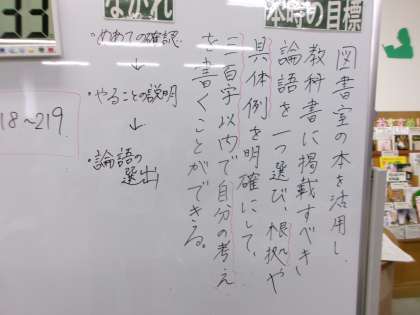 本時の目標
図書室の本を活用し、
教科書に掲載すべき
論語を一つ選び、根拠や
具体例を明確にして、
二百字以内で自分の考え
を書くことができる。
ながれ
・めあての確認
↓
・やることの説明
↓
・論語の
選出
18~219
33